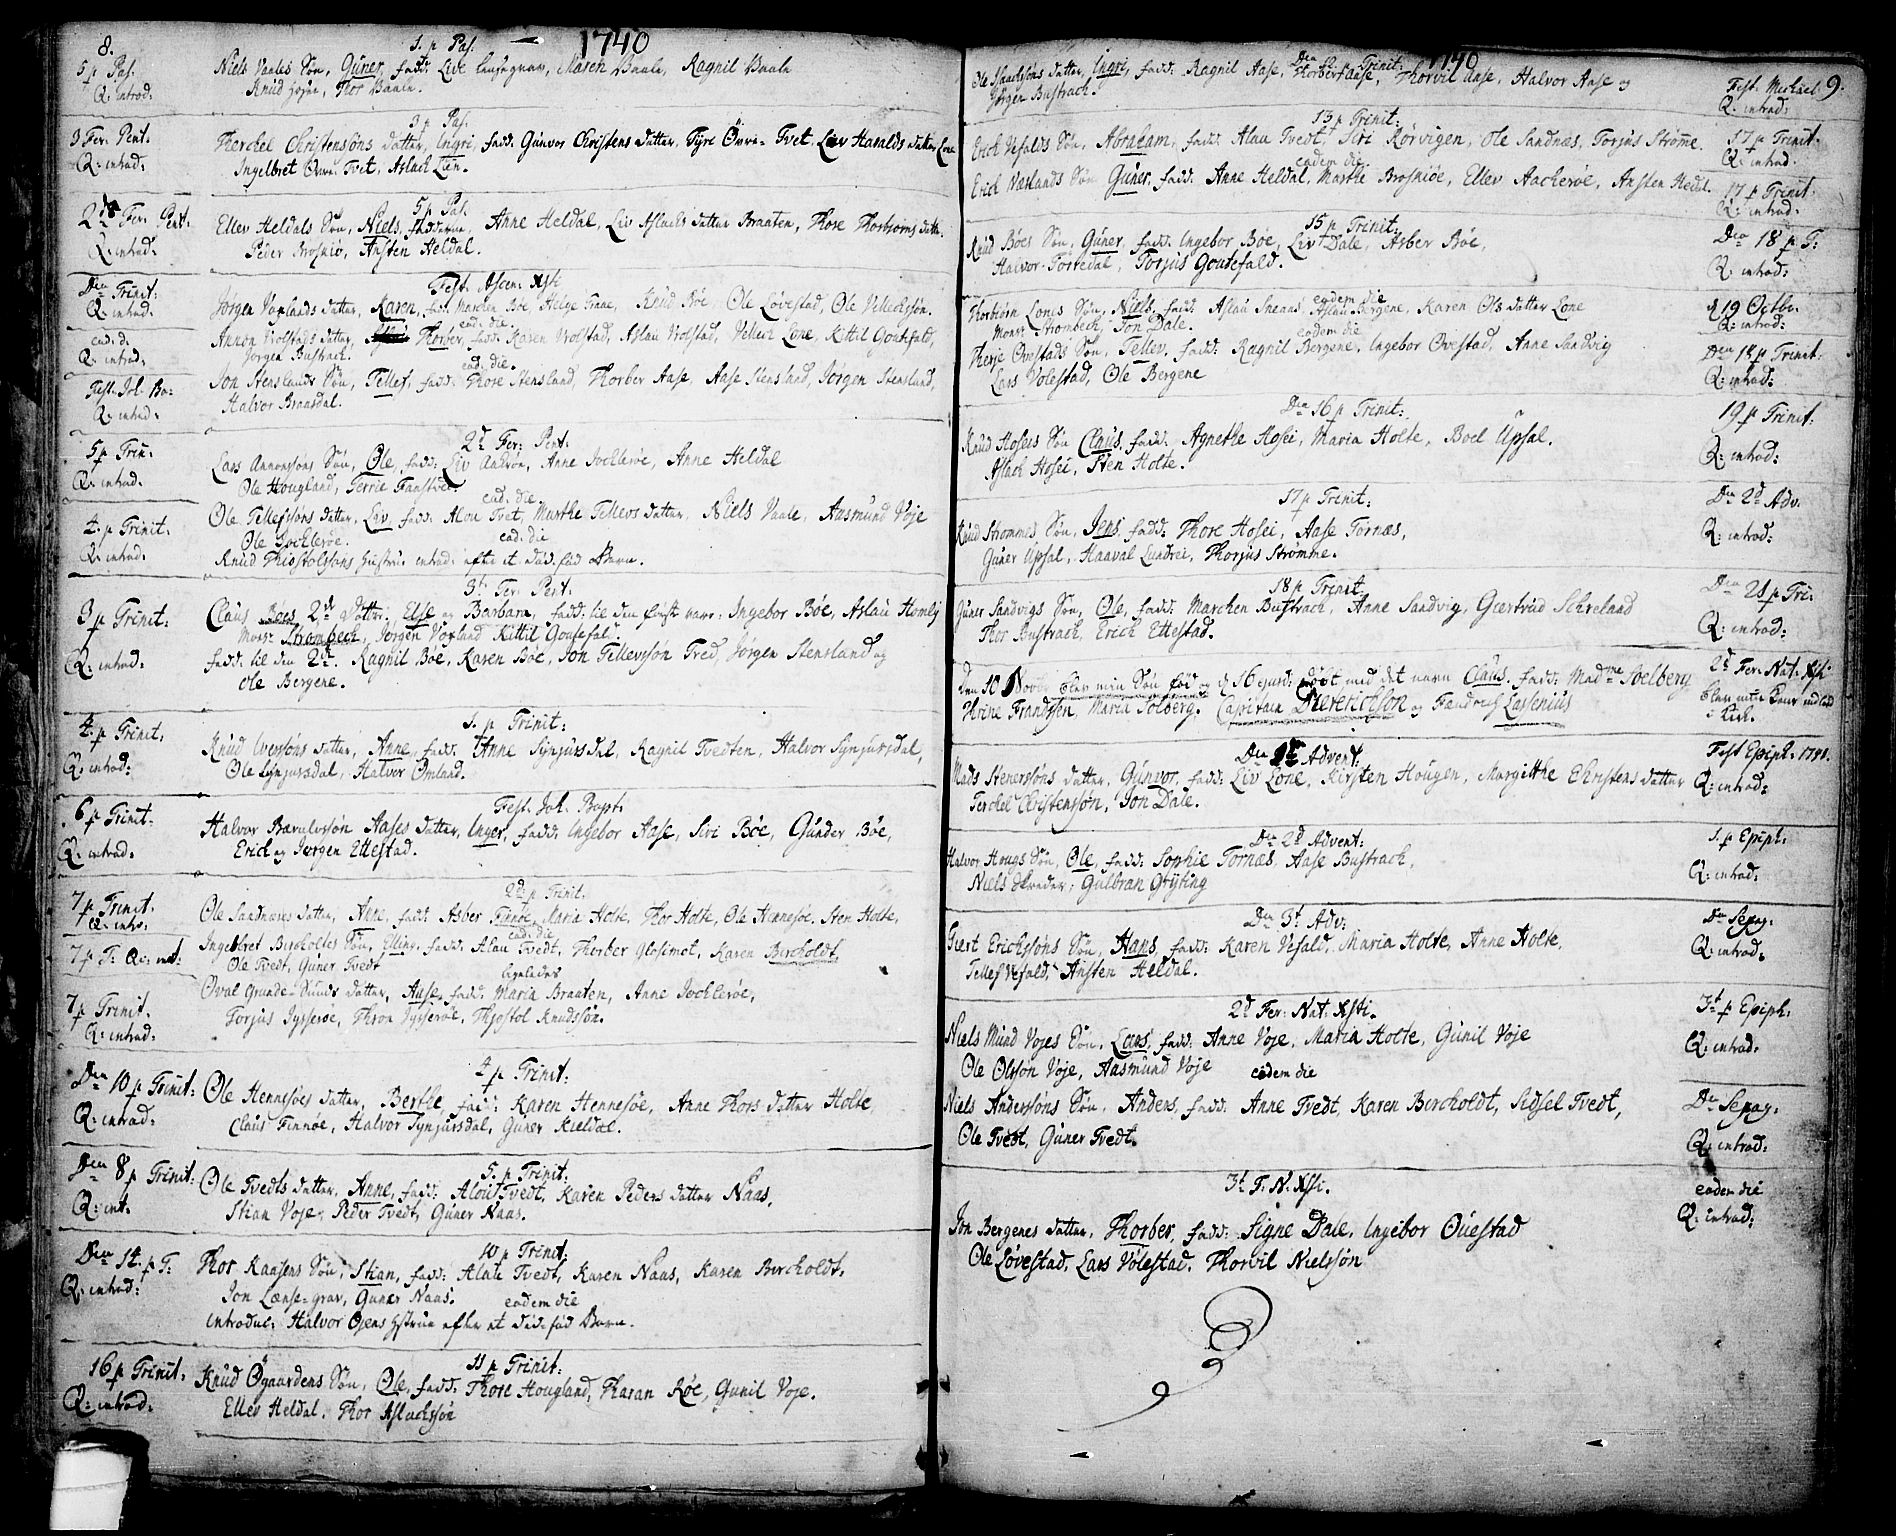 8.
1740
1. p Pas.
5 p Pas.
Q: introd:
Niels Vaales Søn, Guner, fadd: Live Lensegrav, Maren Vaale, Ragnil Vaale
Knud Thor Vaale.
3 p Pas.
3 Fer. Pent.
Q: introd:
Therckel Christensøns datter, Ingri, fadd: Gunvor Christens datter, Tyri Øvre-Tvet, Liv Haralds datter Lone
Ingelbret Øvre Tvet, Aslach Lien.
5 p Pas.
2d Fer. Pent.
Q: introd:
Ellev Heldals Søn, Niels, fadderne, Anne Heldal, Liv Aslacks datter Braaten, Thore Thorbiørns datter.
Peder Brosniø, Ansten Heldal.
Fest. Ascen: Xsti
Dca Trinit:
Q: introd:
Jørgen Voxlands datter, Karen, fad. Marchen Bøe, Helge Finne, Knud Bøe, Ole Løvestad, Ole Vellecksøn.
ead. die.
ead. d.
Q: introd:
Annon Vrolstads datter, Thorber, fadd: Karen Vrolstad, Aslau Vrolstad, Vellect Lone, Kittil Goutefald,
Jørgen Bustrach.
ead. die.
Fest. Joh. Ba:
Q: introd:
Jon Stenslands Søn, Tellef, fadd: Thore Stensland, Thorber Aase, Aase Stensland, Jørgen Stensland,
Halvor Braasdal.
2d Fer: Pent.
5 p Trin:
Q: introd:
Lars Annonsøns Søn, Ole, fadd: Liv Anerøe, Anne Jocklerøe, Anne Heldal
Ole Hougland, Terrie Fanstvet.
ead. die
4. p Trinit.
Q: introd:
Ole Tellefsøns datter, Liv, fadd: Alou Tvet, Marthe Tellevs datter, Niels Vaale, Aasmund Voje
Ole Jocklerøe.
ead. die
Knud Thiostolsøns hustru introd: efter et død-fød Barn.
3t. Fer. Pent.
3 p Trinit:
Q: introd:
Claus Boes 2de Døttre, Else og Barbara, fadd: til den første vare: Ingebor Bøe, Aslau Homlej
Monsr Strømbech, Jørgen Voxland Kittil Goutefal.
fadd: til den 2den. Ragnil Bøe, Karen Bøe, Jon Tellevsøn Tved, Jørgen Stensland og
Ole Bergene.
1. p Trinit:
4. p Trinit.
Q: introd:
Knud Iversøns datter, Anne, fadd: Anne Synjursdal, Ragnil Tvedten, Halvor Synjursdal,
Ole Synjursdal, Halvor Omland.
Fest. Joh. Bapt.
6 p Trinit:
Q: introd:
Halvor Bærulvssøn Aases datter, Inger, fadd: Ingebor Aase, Siri Bøe, Gunder Bøe,
Erick og Jørgen Ettestad.
2d p Trinit.
7 p Trinit.
Q: intro:
Ole Sandnæses datter, Anne, fadd: Asber Finnøe, Maria Holte, Thor Holte, Ole Hennesøe. Sten Holte,
ead: die
7 p T. Q: int:
Ingelbret Bircholtes Søn, Elling, fadd: Alau Tvedt, Thorber Glosimot, Karen Bircholdt,
Ole Tvedt, Guner Tvedt
ligeledes
7 p Trinit.
Q: introd:
Oval Grunde-Sunds datter, Aase, fadd: Maria Braaten, Anne Jocklerøe,
Torjus Jysserøe, Thron Jysserøe, Thjostol Knudssøn.
4 p Trinit:
Dca 10 p Trinit:
Q: introd:
Ole Hennesøes datter, Berthe, fadd: Karen Hennesøe, Anne Thors datter Holte,
Claus Finnøe, Halvor Synjursdal, Guner Kieldal.
5. p Trinit:
Dca 8 p Trinit:
Q: int.
Ole Tvedts datter, Anne, fadd: Alou Tvedt, Karen Peders datter Naas.
Stian Voje, Peder Tvedt, Guner Naas.
10 p Trinit:
Dca 14. p T:
Q: introd:
Thor Kaasens Søn, Stian, fadd: Alau Tvedt, Karen Naas, Karen Bircholdt.
Jon Lænse-grav, Guner Naas.
eodem die
introduc: Halvor Øjens hstrue efter et død-fød Barn.
11 p Trinit:
16 p Trinit.
Q: introd:
Knud Øgaardens Søn, Ole, fadd: Thore Hougland, Tharan Røe, Gunil Voje.
Ellev Heldal. Thor Aslachssøn
1740
9.
Dca 12. Trinit:
Ole Isaachsøns datter, Ingri, fadd: Ragnil Aase, Thorber Aase, Thorvil Aase, Halvor Aase og
Jørgen Bustrach.
Fest. Michael
Q: introd:
13 p Trinit:
Erick Vefalds Søn, Abraham, fadd: Alau Tvedt, Siri Rørvigen, Ole Sandnæs, Torjus Strømme.
17 p Trinit.
Q: introd.
eadem die
Erick Næslands Søn Guner, fadd: Anne Heldal, Marthe Brosniøe, Ellev Aackerøe, Ansten Hedal.
17 p Trinit.
Q: introd:
15 p Trinit:
Knud Bøes Søn, Guner, fadd: Ingebor Bøe, Liv Dale, Asber Bøe,
Halvor Tortedal, Torjus Goutefald.
Dca 18 p T:
Q: introd:
eodem die
Thorbiørn Lones Søn, Niels, fadd: Aslau Bergene, Karen Ols datter Lone
Monsr Strømbech, Jon Dale.
d 19 Octbr.
Q: introd:
eodem die
Therje Ovestads Søn, Tellev, fadd: Ragnil Bergene, Ingebor Ovestad, Anne Sandvig
Lars Volestad, Ole Bergene
Dca 18 p Trinit:
Q: introd:
Dca 16 p Trinit:
Knud Hoseis Søn Claus, fadd: Agnethe Hosei, Maria Holte, Boel Upsal.
Aslach Hosei, Sten Holte.
19 p Trinit.
Q: introd:
17 p Trinit:
Knud Strømmes Søn, Jens, fadd: Thore Hosei, Aase Tornæs,
Guner Upsal, Haaval Lundrei, Thorjus Strømme.
Dca 2d Adv.
Q: introd:
18 p Trinit.
Guner Sandvigs Søn, Ole, fadd: Marchen Bustrach, Anne Sandvig, Giertrud Schreland
Thor Bustrach, Erick Ettestad.
Dca 21 p Tri:
Q: introd:
Den 10 Novbr blev min Søn fød og d 16 døbt med det navn Claus. fadd: Madme Soelberg
Thrine Frandssen, Maria Solberg. Capitain Diererichson og Fendrich Lassenius
2d Fer. Nat. Xsti
blev min Kone indled
i Kirk.
Dca 1te Advent.
Mads Stenersøns datter, Gunvor, fadd: Liv Lone, Kirsten Hougen, Margitthe Christens datter
Terckel Christensøn, Jon Dale.
Fest Epiph. 1741.
Q: introd:
Dca 2d Advent:
Halvor Hougs Søn, Ole, fadd: Sophie Tornæs, Aase Bustrach,
Niels Skreder, Gulbran Gryting
1. p Epiph.
Q: introd:
Dca 3t Adv:
Giert Ericksøns Søn, Hans, fadd: Karen Vefald, Maria Holte, Anne Holte,
Tellef Vefald, Ansten Heldal.
Dca Sepag.
Q: introd.
2d Fer. Nat: Xsti.
Niels Mund Vojes Søn, Lars, fadd: Anne Voje, Maria Holte, Gunil Voje
Ole Olsson Voje, Aasmund Voje
3t p Epiph:
Q: introd:
eodem die
Niels Andersøns Søn, Anders, fadd: Anne Tvedt, Karen Bircholdt, Sidsel Tvedt,
Ole Tvedt, Guner Tvedt.
Dca Sepag:
Q: introd:
3t F. N: Xsti.
Jon Bergenes datter, Thorber, fadd: Signe Dale, Ingebor Ouestad
Ole Løvestad, Lars Volestad, Thorvil Nielssøn
eodem die
Q: introd: